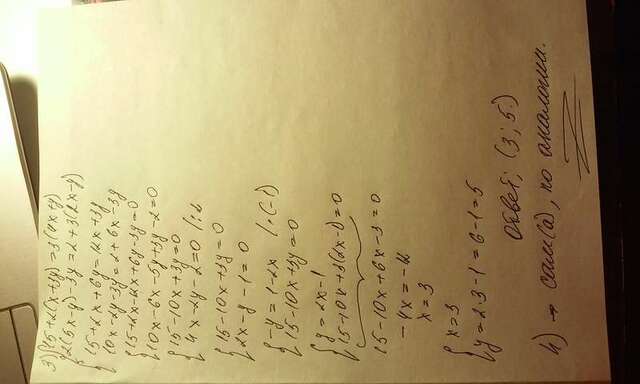 3) {15+2(x+3y)=3(4x+y)
2(5x-y)-3y=2+3(2x-y)
{15+2x+6y=12x+3y
10x-2y-3y=2+6x-3y
{15+2x-12x+6y-3y=0
10x-6x-5y+3y-2=0
{15-10x+3y=0
4x-2y-2=0 |:2
{15-10x+3y=0
2x-y-1=0
{-y=1-2x |·(-1)
15-10x+3y=0
{y=2x-1
15-10x+3(2x-1)=0
15-10x+6x-3=0
-4x=-12
x=3
{x=3
y=2·3-1=6-1=5
Ответ: (3;5).
4) → сам(а), по аналогии.